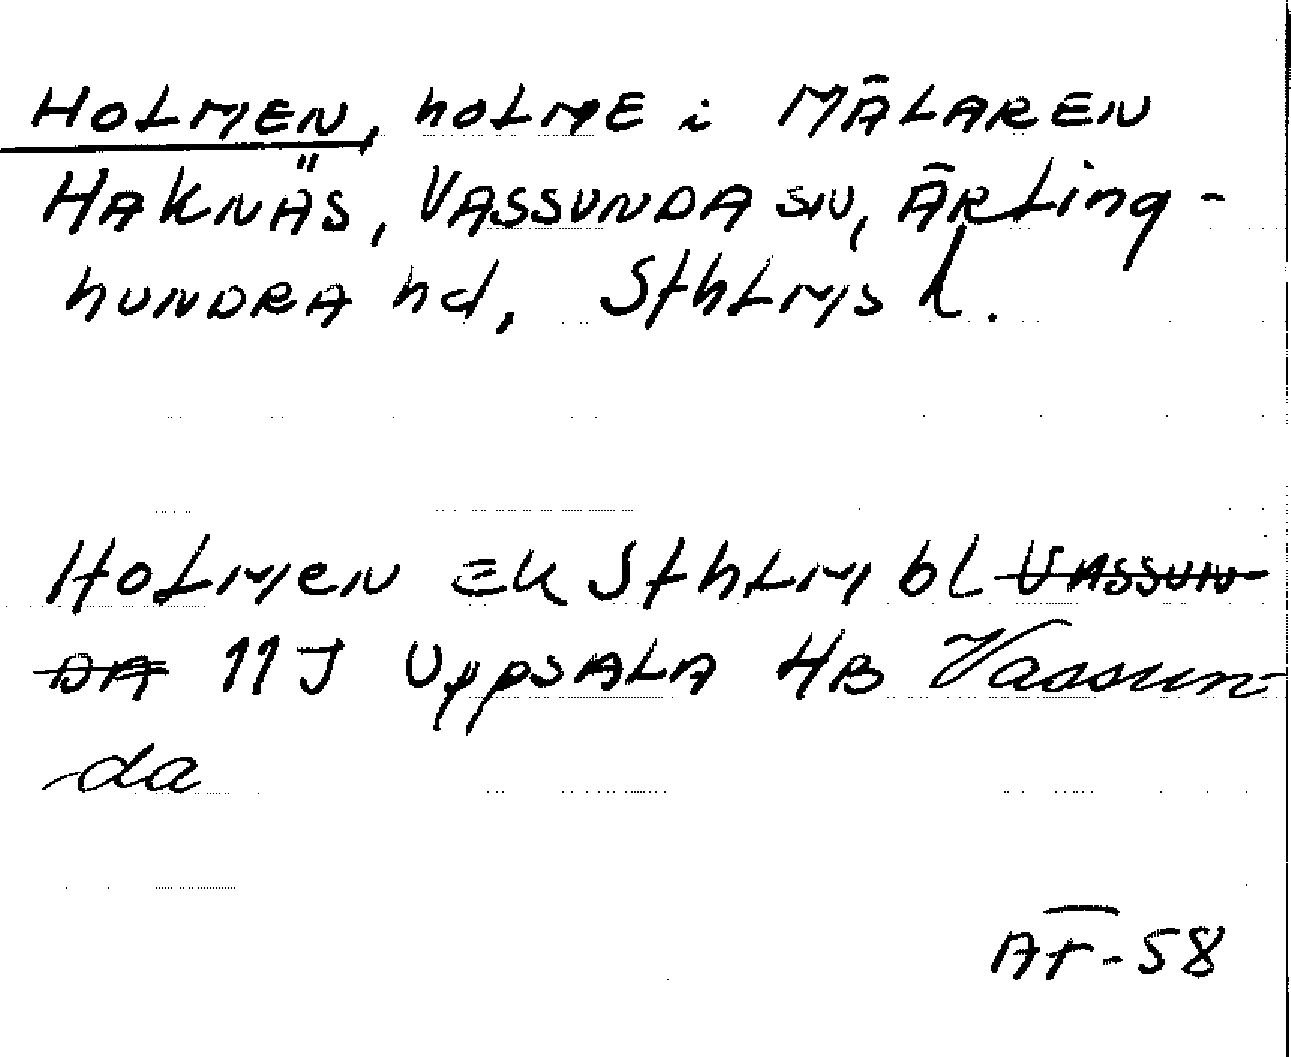 HOLMEN, holme i MÄLAREN
HAKNÄS, VASSUNDA sn, ÄRLing-
hundra hd, Sthlms l.
Holmen EK Sthlm bl ~~VASSUN-~~
~~DA~~ 11J Uppsala 4B Vassun-
da
ÄT-58